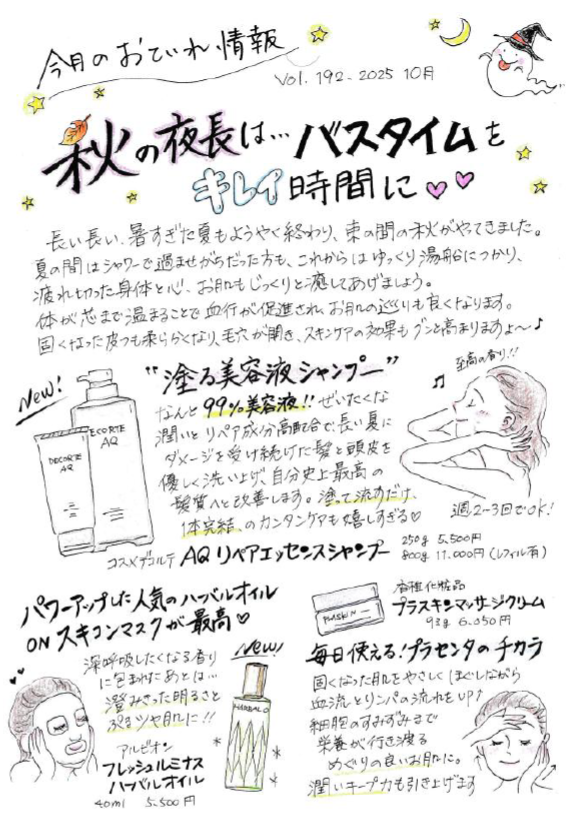 今月のおていれ情報
Vol. 192. 2025 10月
秋の夜長は…バスタイムを
キレイ時間に
長い長い、暑すぎた夏もようやく終わり、束の間の秋がやってきました。
夏の間はシャワーで過ませがちだった方も、これからはゆっくり湯船につかり、
疲れ切った身体と心、お肌もじっくりと癒してあげましょう。
体が芯まで温まることで血行が促進され、お肌の巡りも良くなります。
固くなった皮フも柔らかくなり、毛穴が開き、スキンケアの効果もグンと高まりますよ〜♪
New!
"塗る美容液シャンプー"
なんと99%美容液!! ぜいたくな
潤いとリペア成分高配合で、長い夏に
ダメージを受け続けた髪と頭皮を
優しく洗い上げ、自分史上最高の
髪質へと改善します。塗って流すだけ、
1本完結、のカンタンケアも嬉しすぎる
至高の香り!!
週2~3回でOK!
ECORTE
AQ
DECORTE
AQ
コスメデコルテ AQ リペアエッセンスシャンプー
250g 5,500円
800g 11,000円 (レフィル有)
パワーアップした人気のハーバルオイル
ON スキコンマスクが最高
New!
深呼吸したくなる香り
に包まれたあとは…
澄みきった明るさと
ぷるツヤ肌に!!
HERBAL O
アルビオン
フレッシュルミナス
ハーバルオイル
40ml 5,500円
PLASKIN
プラスキンマッサージクリーム
93g 6,050円
毎日使える!プラセンタのチカラ
固くなった肌をやさしくほぐしながら
血流とリンパの流れをUP↑
細胞のすみずみまで
栄養が行き渡る
めぐりの良いお肌に。
潤いキープ力も引き上げます